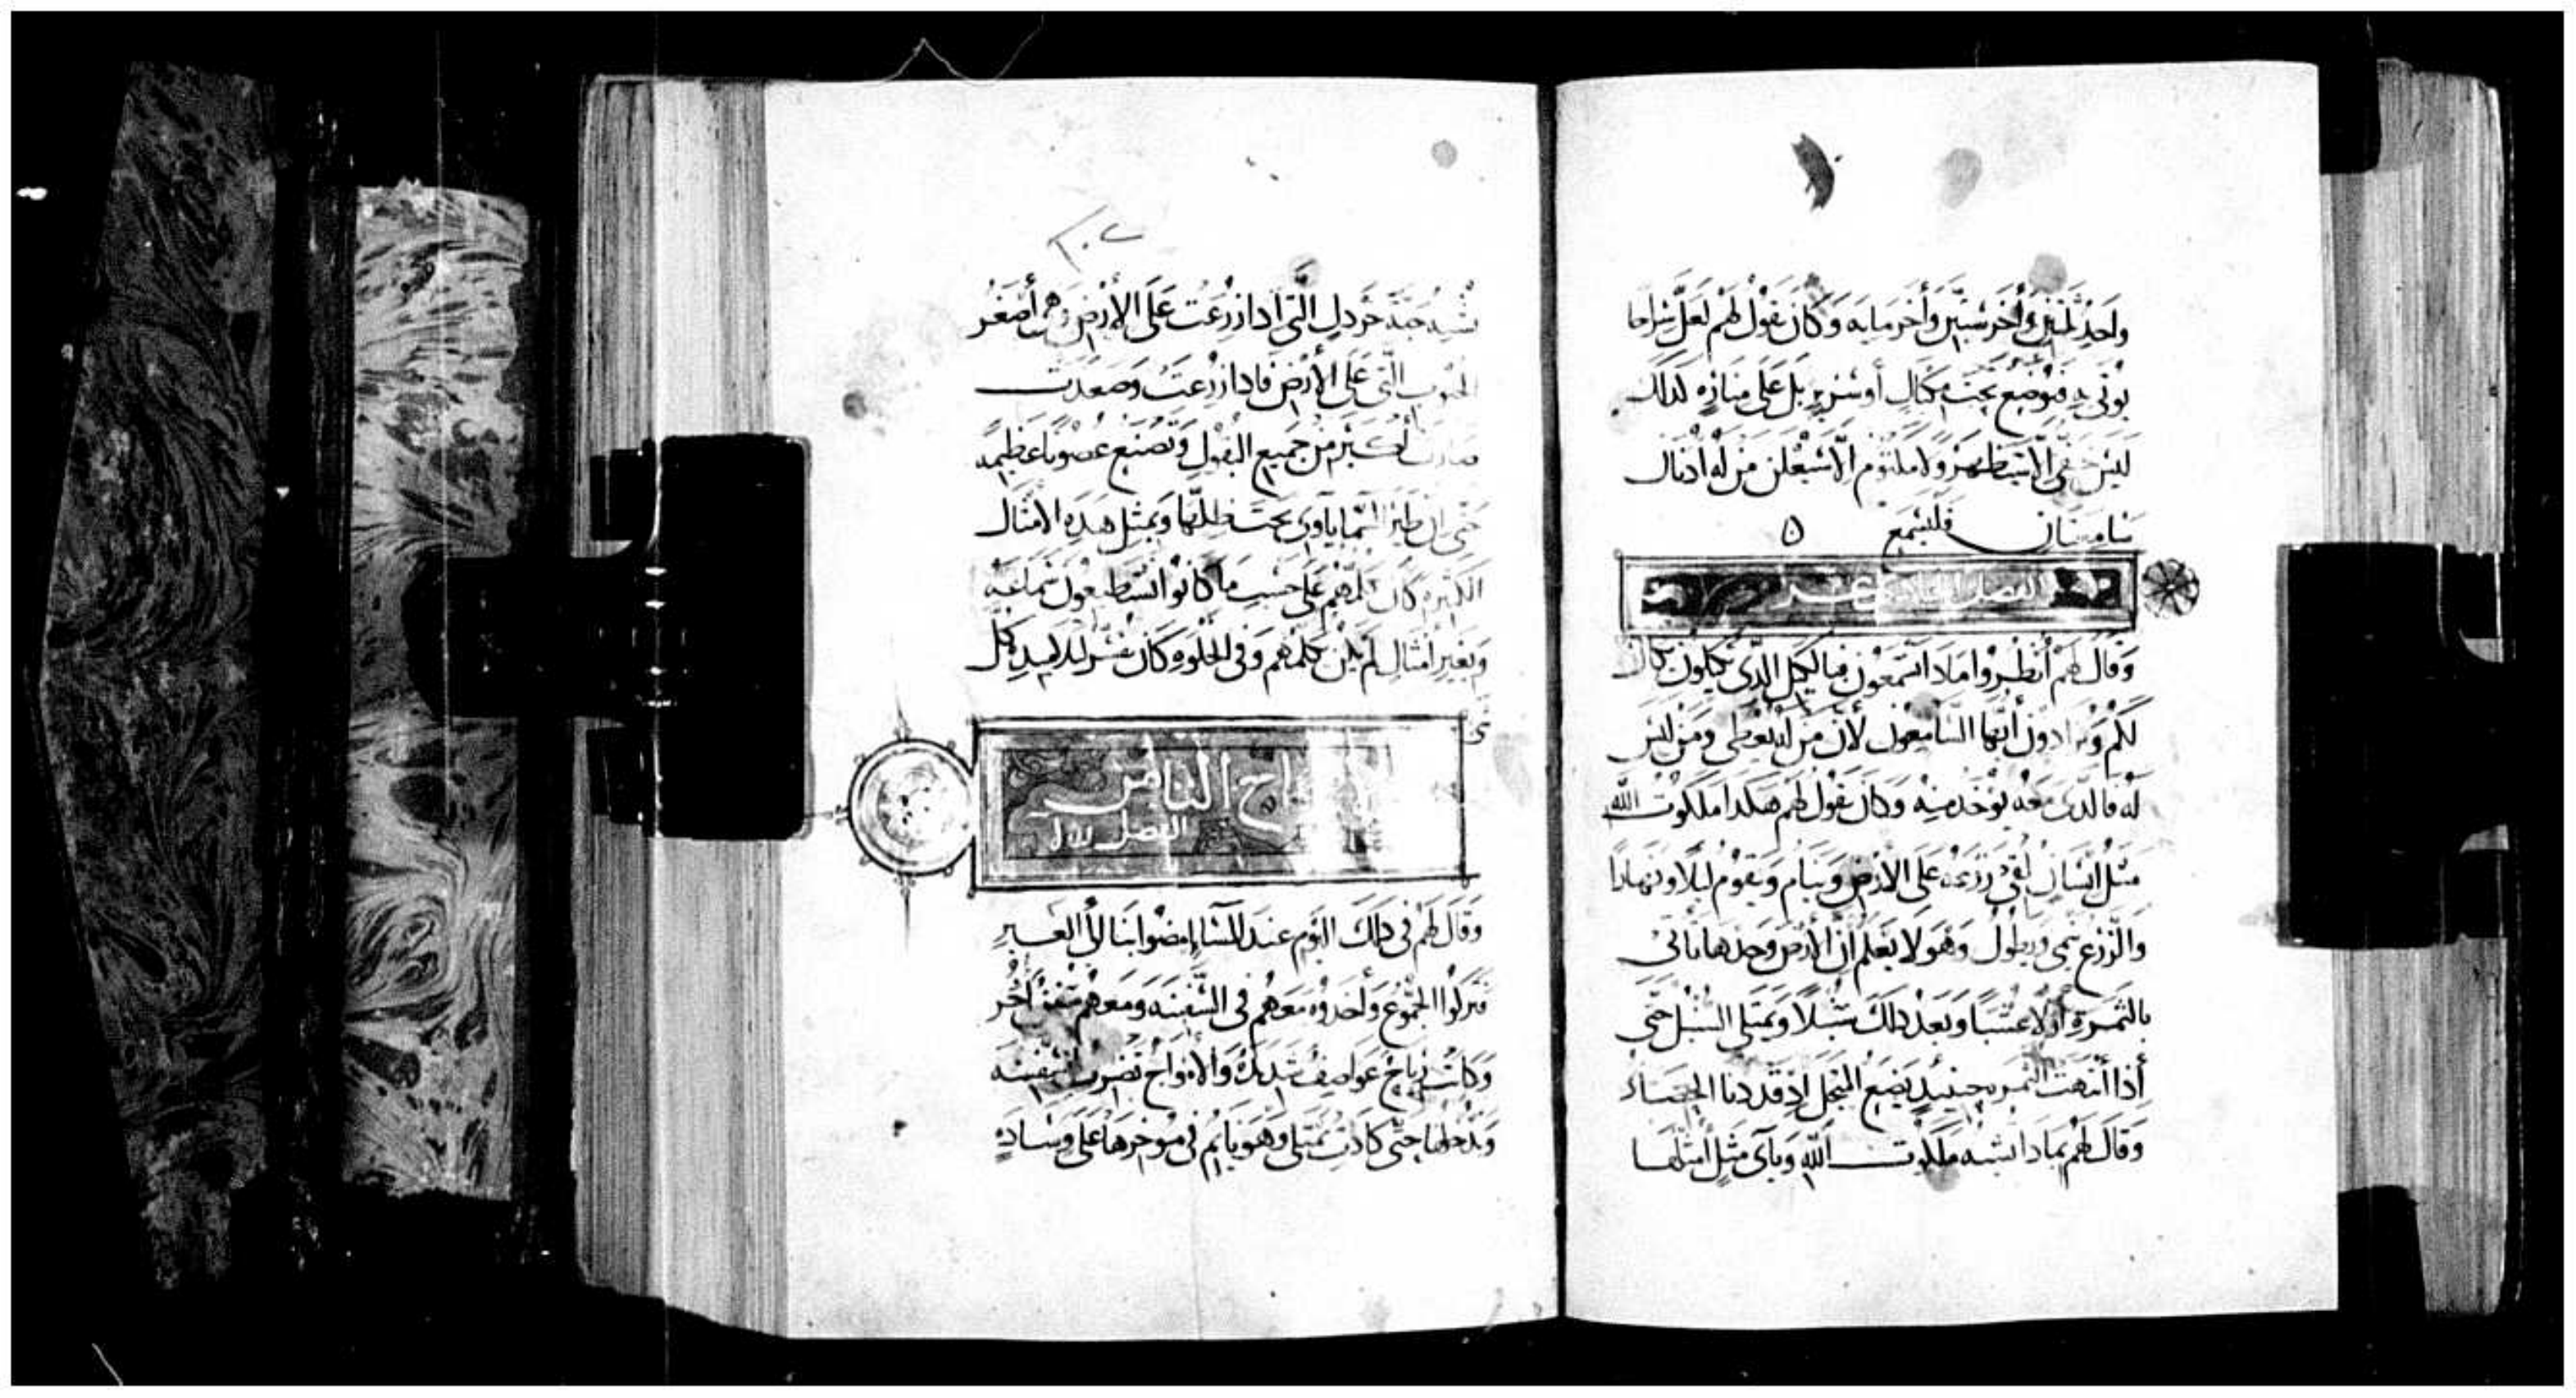 واحد ثلثين وأخر ستين وأخر مايه وكان يقول لهم لعل سراجا
يوتى به فيوضع تحت مكيال أو سرير بل على مناره لذلك
ليس خفى الا سيظهر ولا مكتوم الا سيعلن من له اذنان
سامعتان فليسمع
الفصل الحادي عشر
وقال لهم أنظروا ماذا تسمعون فبالكيل الذي تكيلون يكال
لكم وتزادون أيها السامعون لأن من له يعطى ومن ليس
له فالذى معه يوخذ منه وكان يقول لهم هكذا ملكوت الله
مثل انسان يلقى زرعه على الارض وينام ويقوم ليلا ونهارا
والزرع ينمى ويطول وهو لا يعلم ان الارض وحدها تاتى
بالثمرة أولا عشبا وبعد ذلك سنبلا ويمتلى السنبل حتى
أذا أنتهت الثمره حينيذ يضع المنجل إذ قد دنا الحصاد
وقال لهم بماذا اشبه ملكوت الله وبأى مثل أمثلها
٢٠٢
تشبه حبة خردل التى اذا زرعت على الارض وهى أصغر
الحبوب التى على الارض فاذا زرعت وصعدت
صارت أكبر من جميع البقول وتصنع غصونا عظيمه
حتى ان طير السما ياوى تحت ظلها وبمثل هذه الامثال
الكثيره كان يكلمهم على حسب ما كانوا يستطيعون سماعه
وبغير أمثال لم يكن يكلمهم وفى الخلوه كان يفسر لتلاميذه كل
شى
الاصحاح الثامن
الفصل الاول
وقال لهم فى ذلك اليوم عند المسا إمضوا بنا الى العبر
فتركوا الجموع وأخذوه معهم فى السفينه ومعهم سفن أخر
وكانت رياح عواصف شديدة والامواج تضرب السفينه
وتدخلها حتى كادت تمتلى وهو نايم فى موخرها على وسادة